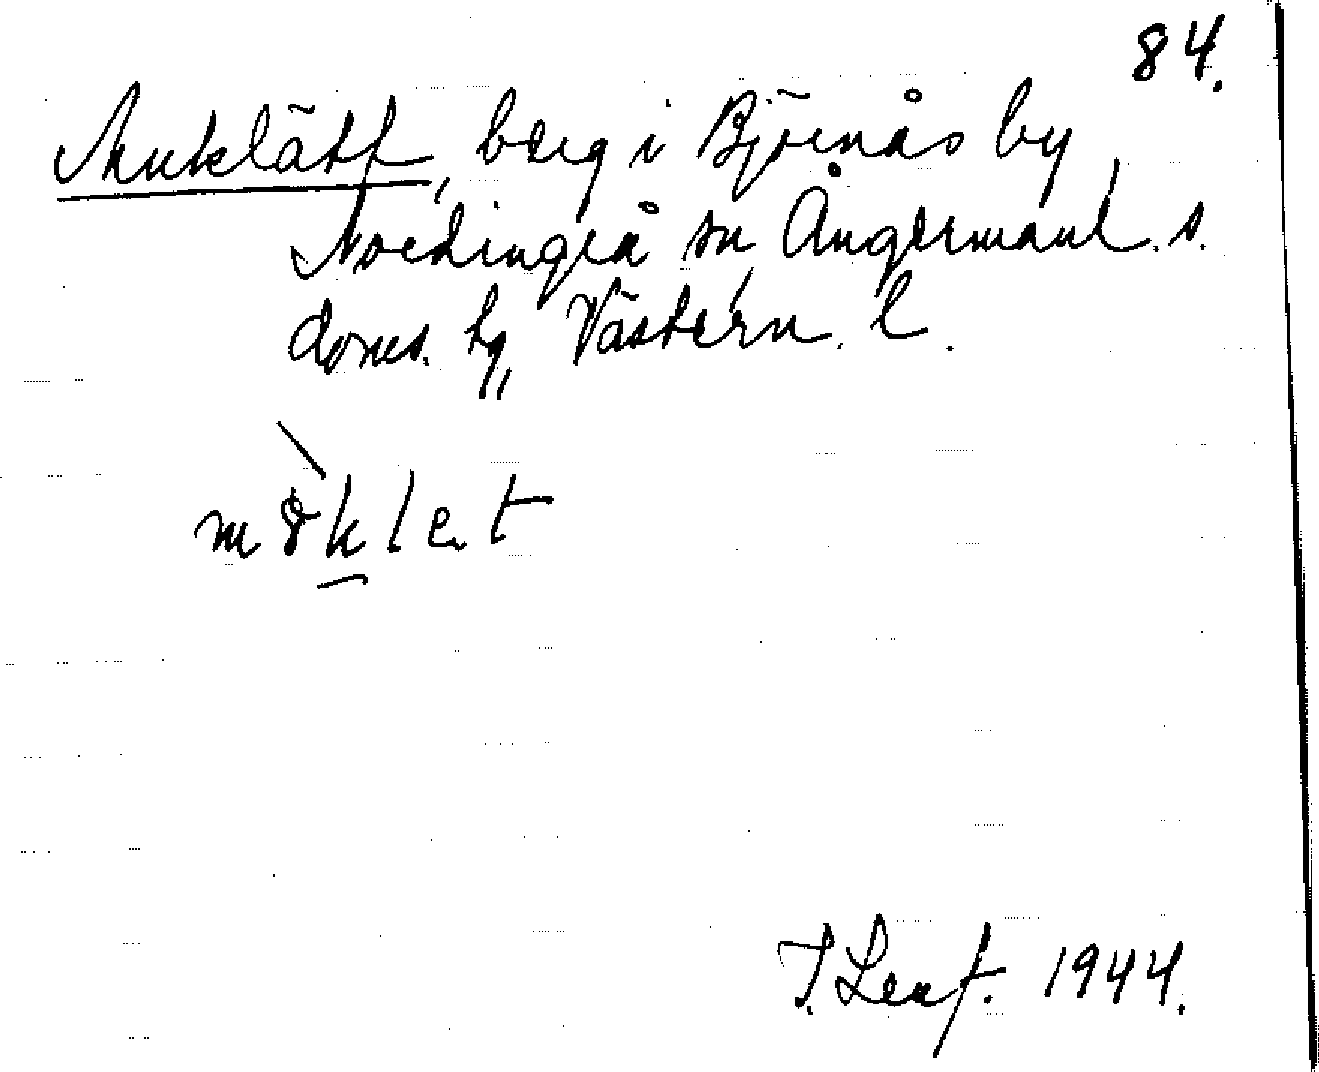 84.
Muklätt, berg i Björnås by
Nordingrå sn Ångermanl. s.
doms. hg, Västern. l.
m k l e t
T. Lenf. 1944.